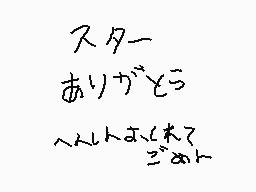 スター
ありがとう
へんしんおくれて
ごめん